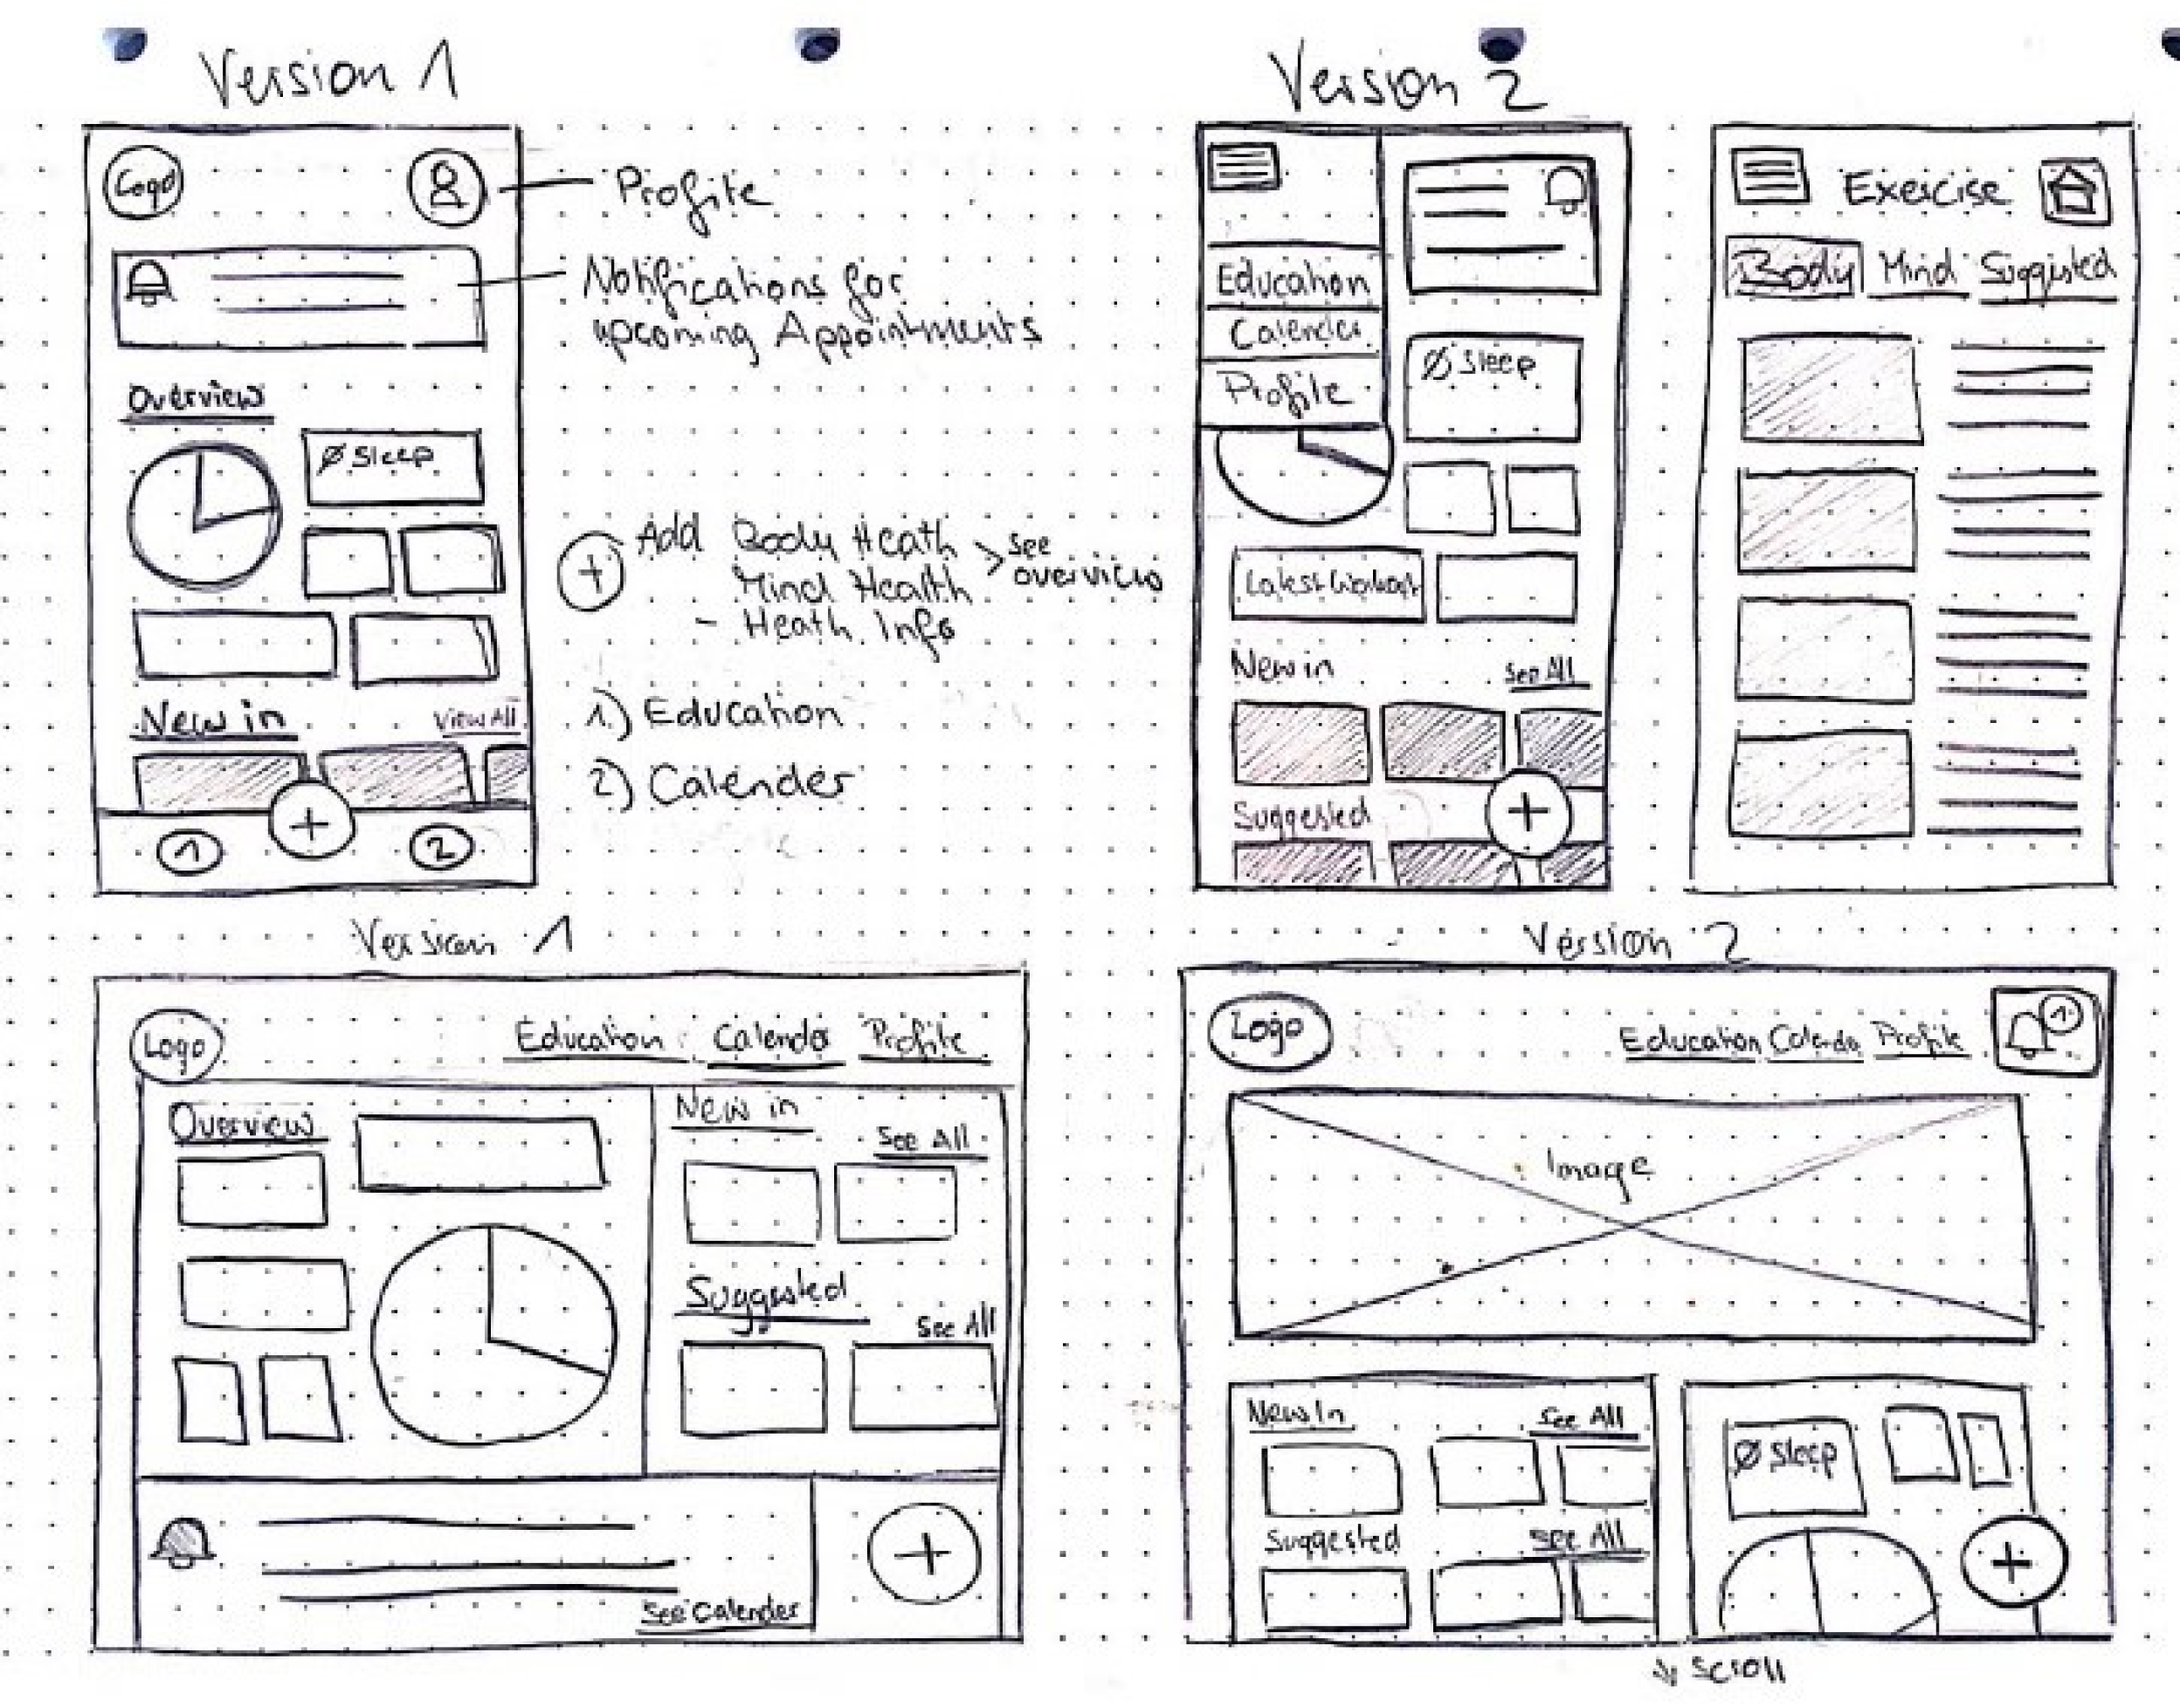 Version 1
Logo
Profile
Notifications for
upcoming Appointments
Overview
Ø Sleep
+ Add Body Heath
Mind Health
- Heath Info
> see
overview
New in
View All
1.) Education
2) Calender
+
1
2
Version 2
Education
Calender
Profile
Ø Sleep
Latest Workout
New in
See All
Suggested
+
Exercise
Body
Mind
Suggested
Version 1
Logo
Education
Calender
Profile
Overview
New in
See All
Suggested
See All
See Calender
+
Version 2
Logo
Education
Calender
Profile
1
Image
New In
See All
Suggested
See All
Ø Sleep
+
Scroll